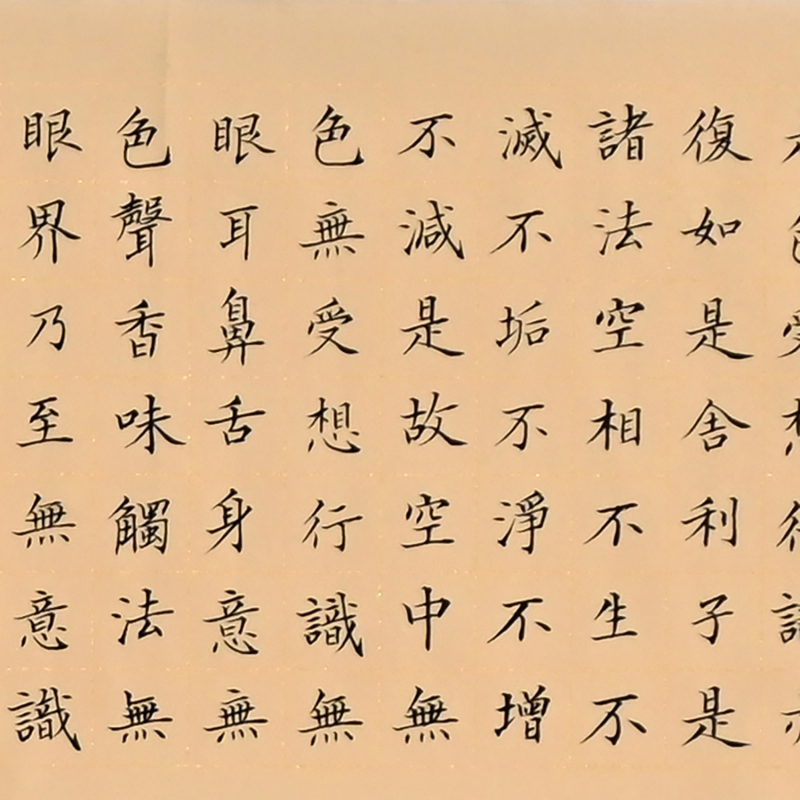 復如是舍利子是
諸法空相不生不
滅不垢不淨不增
不減是故空中無
色無受想行識無
眼耳鼻舌身意無
色聲香味觸法無
眼界乃至無意識